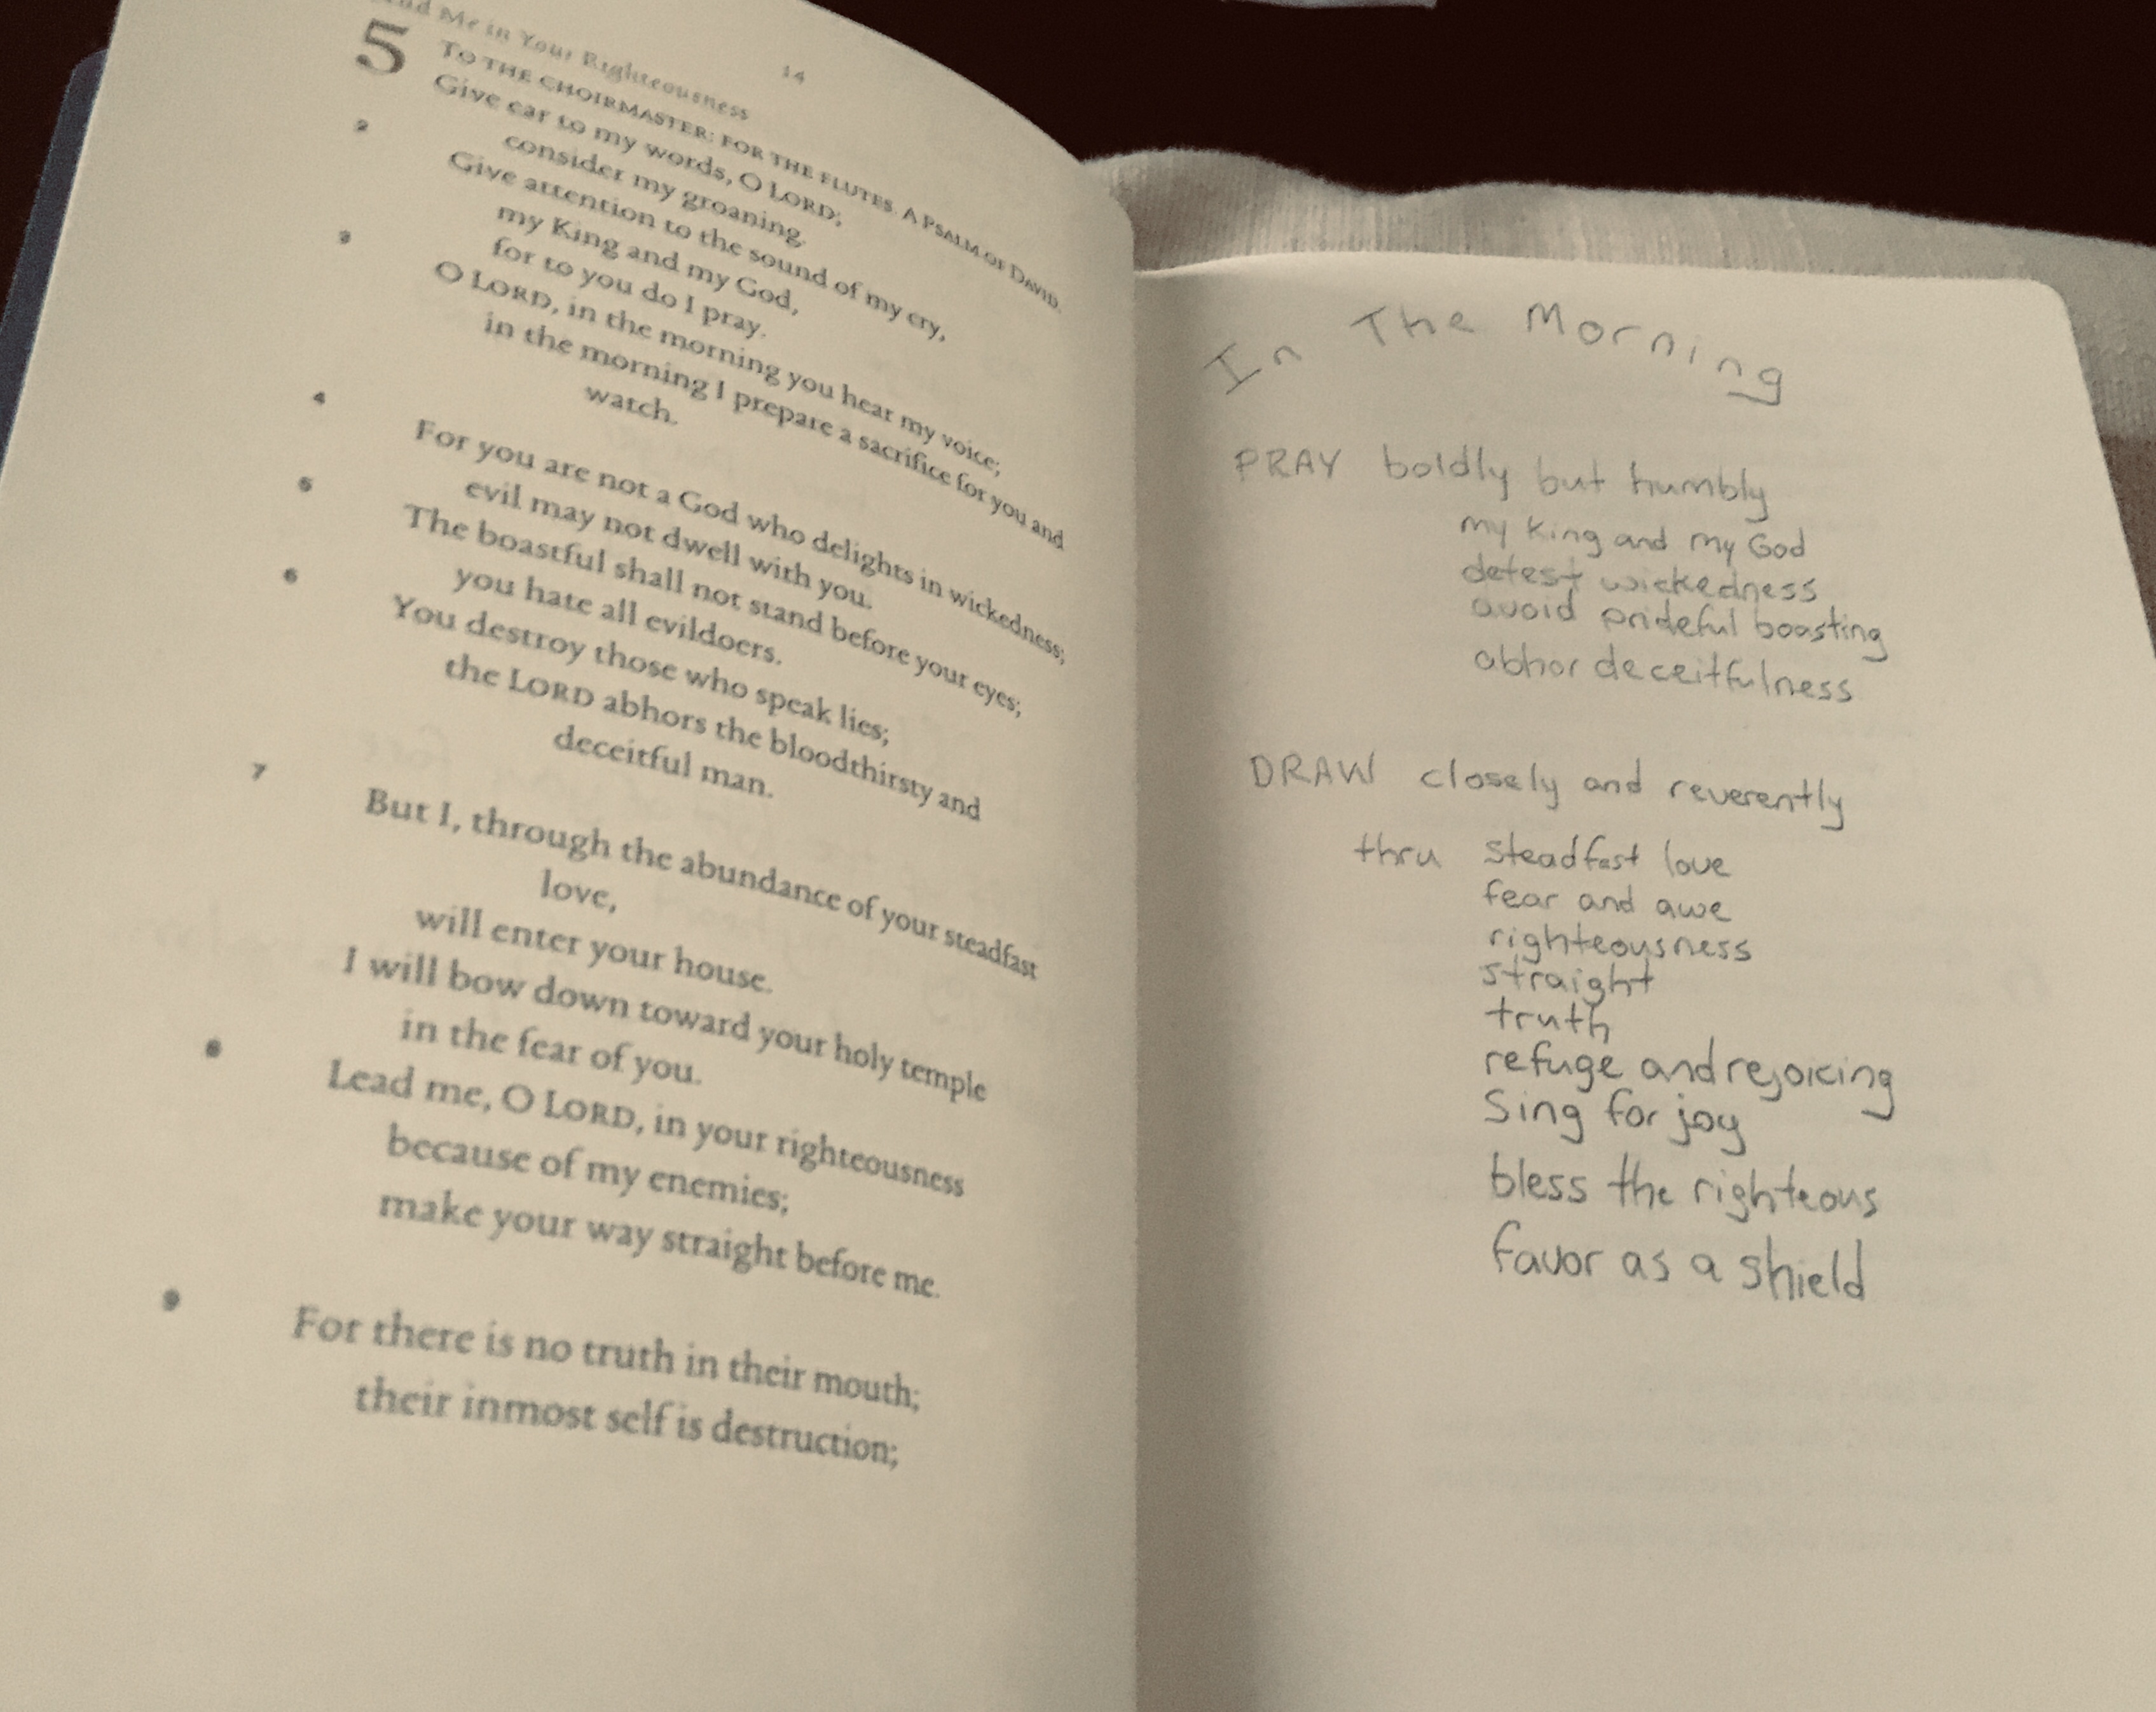 Me in Your Righteousness
14
5
TO THE CHOIRMASTER: FOR THE FLUTES. A PSALM OF DAVID.
Give ear to my words, O LORD;
consider my groaning.
2 Give attention to the sound of my cry,
my King and my God,
for to you do I pray.
3 O LORD, in the morning you hear my voice;
in the morning I prepare a sacrifice for you and
watch.
4 For you are not a God who delights in wickedness;
evil may not dwell with you.
5 The boastful shall not stand before your eyes;
you hate all evildoers.
6 You destroy those who speak lies;
the LORD abhors the bloodthirsty and
deceitful man.
7 But I, through the abundance of your steadfast
love,
will enter your house.
I will bow down toward your holy temple
in the fear of you.
8 Lead me, O LORD, in your righteousness
because of my enemies;
make your way straight before me.
9 For there is no truth in their mouth;
their inmost self is destruction;
In The Morning
PRAY boldly but humbly
my King and my God
detest wickedness
avoid prideful boasting
abhor deceitfulness
DRAW closely and reverently
thru steadfast love
fear and awe
righteousness
straight
truth
refuge and rejoicing
Sing for joy
bless the righteous
favor as a shield